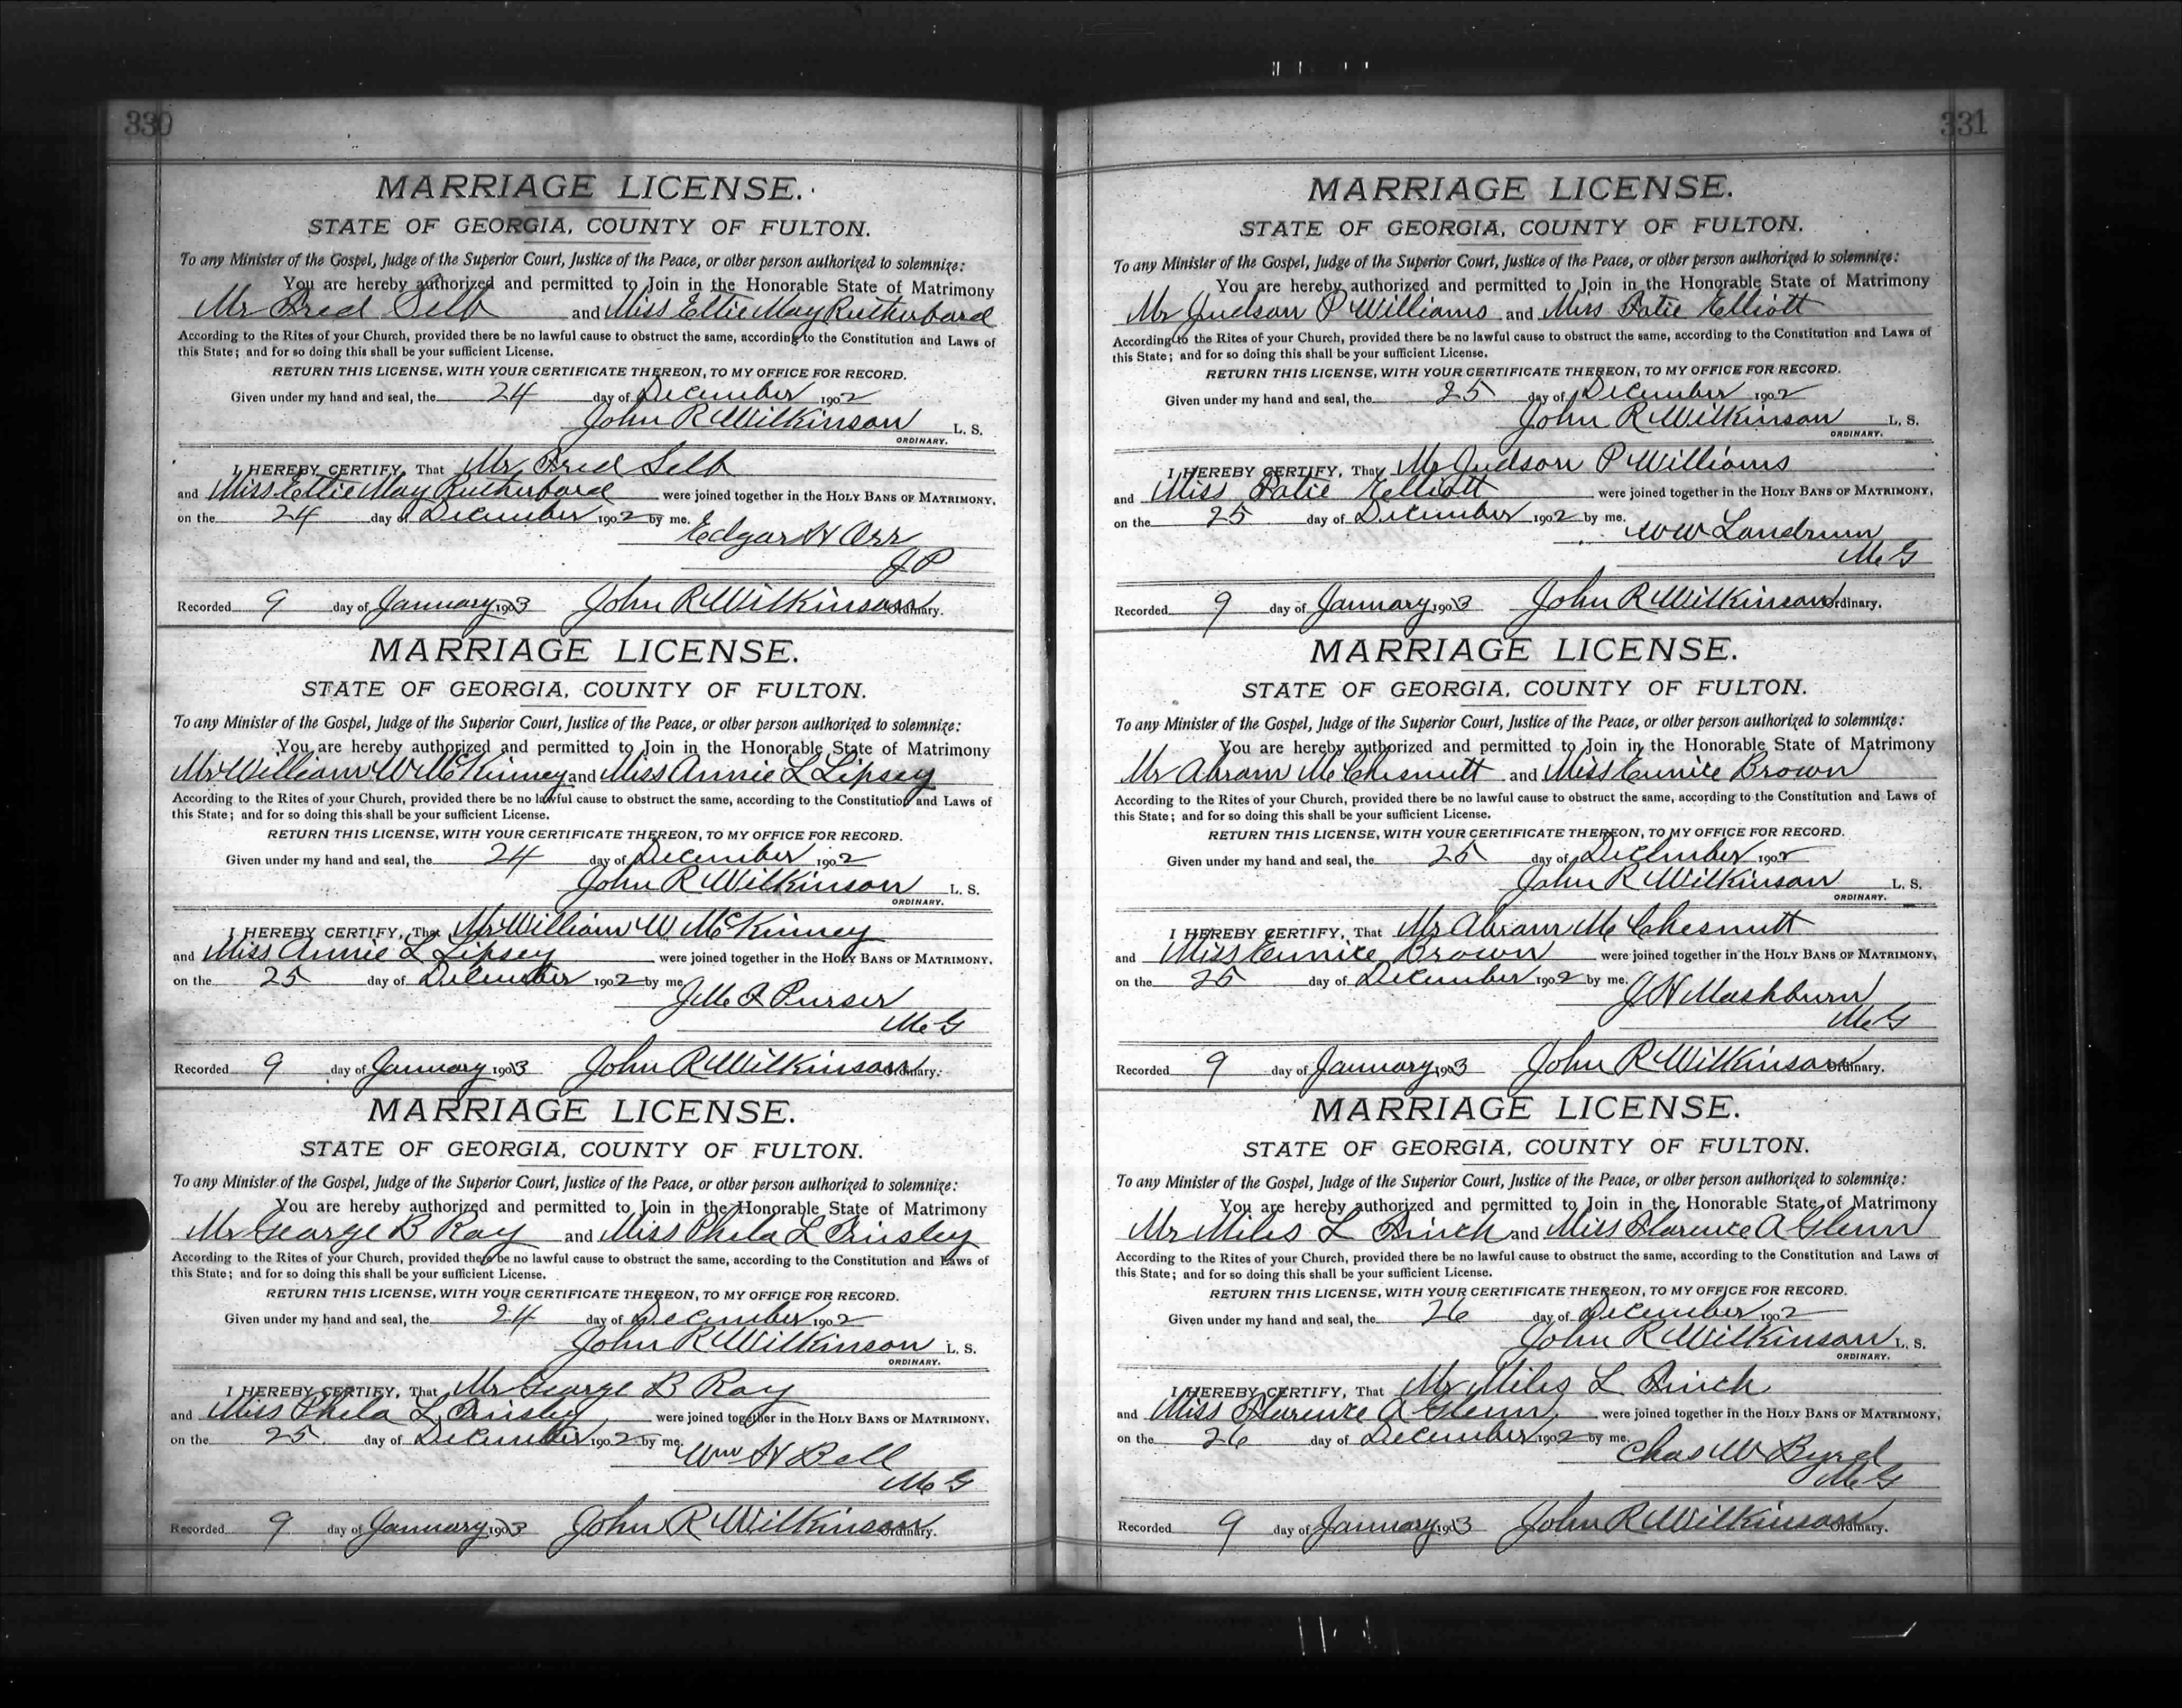 330
MARRIAGE LICENSE.
STATE OF GEORGIA, COUNTY OF FULTON.
To any Minister of the Gospel, Judge of the Superior Court, Justice of the Peace, or other person authorized to solemnize:
You are hereby authorized and permitted to Join in the Honorable State of Matrimony
Mr Fred Self and Miss Ettie May Rutherford
According to the Rites of your Church, provided there be no lawful cause to obstruct the same, according to the Constitution and Laws of
this State; and for so doing this shall be your sufficient License.
RETURN THIS LICENSE, WITH YOUR CERTIFICATE THEREON, TO MY OFFICE FOR RECORD.
Given under my hand and seal, the 24 day of December 1902
John R Wilkinson L. S.
ORDINARY.
I HEREBY CERTIFY, That Mr Fred Self
and Miss Ettie May Rutherford were joined together in the HOLY BANS OF MATRIMONY,
on the 24 day of December 1902 by me.
Edgar H Orr
J P
Recorded 9 day of January 1903 John R Wilkinson Ordinary.
MARRIAGE LICENSE.
STATE OF GEORGIA, COUNTY OF FULTON.
To any Minister of the Gospel, Judge of the Superior Court, Justice of the Peace, or other person authorized to solemnize:
You are hereby authorized and permitted to Join in the Honorable State of Matrimony
Mr William W McKinney and Miss Annie L Lipsey
According to the Rites of your Church, provided there be no lawful cause to obstruct the same, according to the Constitution and Laws of
this State; and for so doing this shall be your sufficient License.
RETURN THIS LICENSE, WITH YOUR CERTIFICATE THEREON, TO MY OFFICE FOR RECORD.
Given under my hand and seal, the 24 day of December 1902
John R Wilkinson L. S.
ORDINARY.
I HEREBY CERTIFY, That Mr William W McKinney
and Miss Annie L Lipsey were joined together in the HOLY BANS OF MATRIMONY,
on the 25 day of December 1902 by me.
Purser
M G
Recorded 9 day of January 1903 John R Wilkinson Ordinary.
MARRIAGE LICENSE.
STATE OF GEORGIA, COUNTY OF FULTON.
To any Minister of the Gospel, Judge of the Superior Court, Justice of the Peace, or other person authorized to solemnize:
You are hereby authorized and permitted to Join in the Honorable State of Matrimony
Mr George B Ray and Miss Phila L Tinsley
According to the Rites of your Church, provided there be no lawful cause to obstruct the same, according to the Constitution and Laws of
this State; and for so doing this shall be your sufficient License.
RETURN THIS LICENSE, WITH YOUR CERTIFICATE THEREON, TO MY OFFICE FOR RECORD.
Given under my hand and seal, the 24 day of December 1902
John R Wilkinson L. S.
ORDINARY.
I HEREBY CERTIFY, That Mr George B Ray
and Miss Phila L Tinsley were joined together in the HOLY BANS OF MATRIMONY,
on the 25 day of December 1902 by me.
Wm H Bell
M G
Recorded 9 day of January 1903 John R Wilkinson Ordinary.
331
MARRIAGE LICENSE.
STATE OF GEORGIA, COUNTY OF FULTON.
To any Minister of the Gospel, Judge of the Superior Court, Justice of the Peace, or other person authorized to solemnize:
You are hereby authorized and permitted to Join in the Honorable State of Matrimony
Mr Judson P Williams and Miss Katie Elliott
According to the Rites of your Church, provided there be no lawful cause to obstruct the same, according to the Constitution and Laws of
this State; and for so doing this shall be your sufficient License.
RETURN THIS LICENSE, WITH YOUR CERTIFICATE THEREON, TO MY OFFICE FOR RECORD.
Given under my hand and seal, the 25 day of December 1902
John R Wilkinson L. S.
ORDINARY.
I HEREBY CERTIFY, That Mr Judson P Williams
and Miss Katie Elliott were joined together in the HOLY BANS OF MATRIMONY,
on the 25 day of December 1902 by me.
W W Landrum
M G
Recorded 9 day of January 1903 John R Wilkinson Ordinary.
MARRIAGE LICENSE.
STATE OF GEORGIA, COUNTY OF FULTON.
To any Minister of the Gospel, Judge of the Superior Court, Justice of the Peace, or other person authorized to solemnize:
You are hereby authorized and permitted to Join in the Honorable State of Matrimony
Mr Abram M Chesnutt and Miss Eunice Brown
According to the Rites of your Church, provided there be no lawful cause to obstruct the same, according to the Constitution and Laws of
this State; and for so doing this shall be your sufficient License.
RETURN THIS LICENSE, WITH YOUR CERTIFICATE THEREON, TO MY OFFICE FOR RECORD.
Given under my hand and seal, the 25 day of December 1902
John R Wilkinson L. S.
ORDINARY.
I HEREBY CERTIFY, That Mr Abram M Chesnutt
and Miss Eunice Brown were joined together in the HOLY BANS OF MATRIMONY,
on the 25 day of December 1902 by me.
J H Mashburn
M G
Recorded 9 day of January 1903 John R Wilkinson Ordinary.
MARRIAGE LICENSE.
STATE OF GEORGIA, COUNTY OF FULTON.
To any Minister of the Gospel, Judge of the Superior Court, Justice of the Peace, or other person authorized to solemnize:
You are hereby authorized and permitted to Join in the Honorable State of Matrimony
Mr Miles L Finch and Miss Florence A Glenn
According to the Rites of your Church, provided there be no lawful cause to obstruct the same, according to the Constitution and Laws of
this State; and for so doing this shall be your sufficient License.
RETURN THIS LICENSE, WITH YOUR CERTIFICATE THEREON, TO MY OFFICE FOR RECORD.
Given under my hand and seal, the 26 day of December 1902
John R Wilkinson L. S.
ORDINARY.
I HEREBY CERTIFY, That Mr Miles L Finch
and Miss Florence A Glenn were joined together in the HOLY BANS OF MATRIMONY,
on the 26 day of December 1902 by me.
Chas W Byrd
M G
Recorded 9 day of January 1903 John R Wilkinson Ordinary.